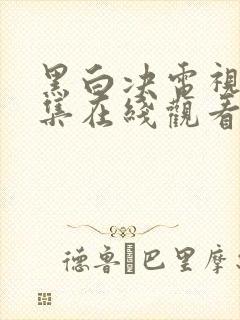 黑白决電視
集在綫觀看
德鲁·巴里摩